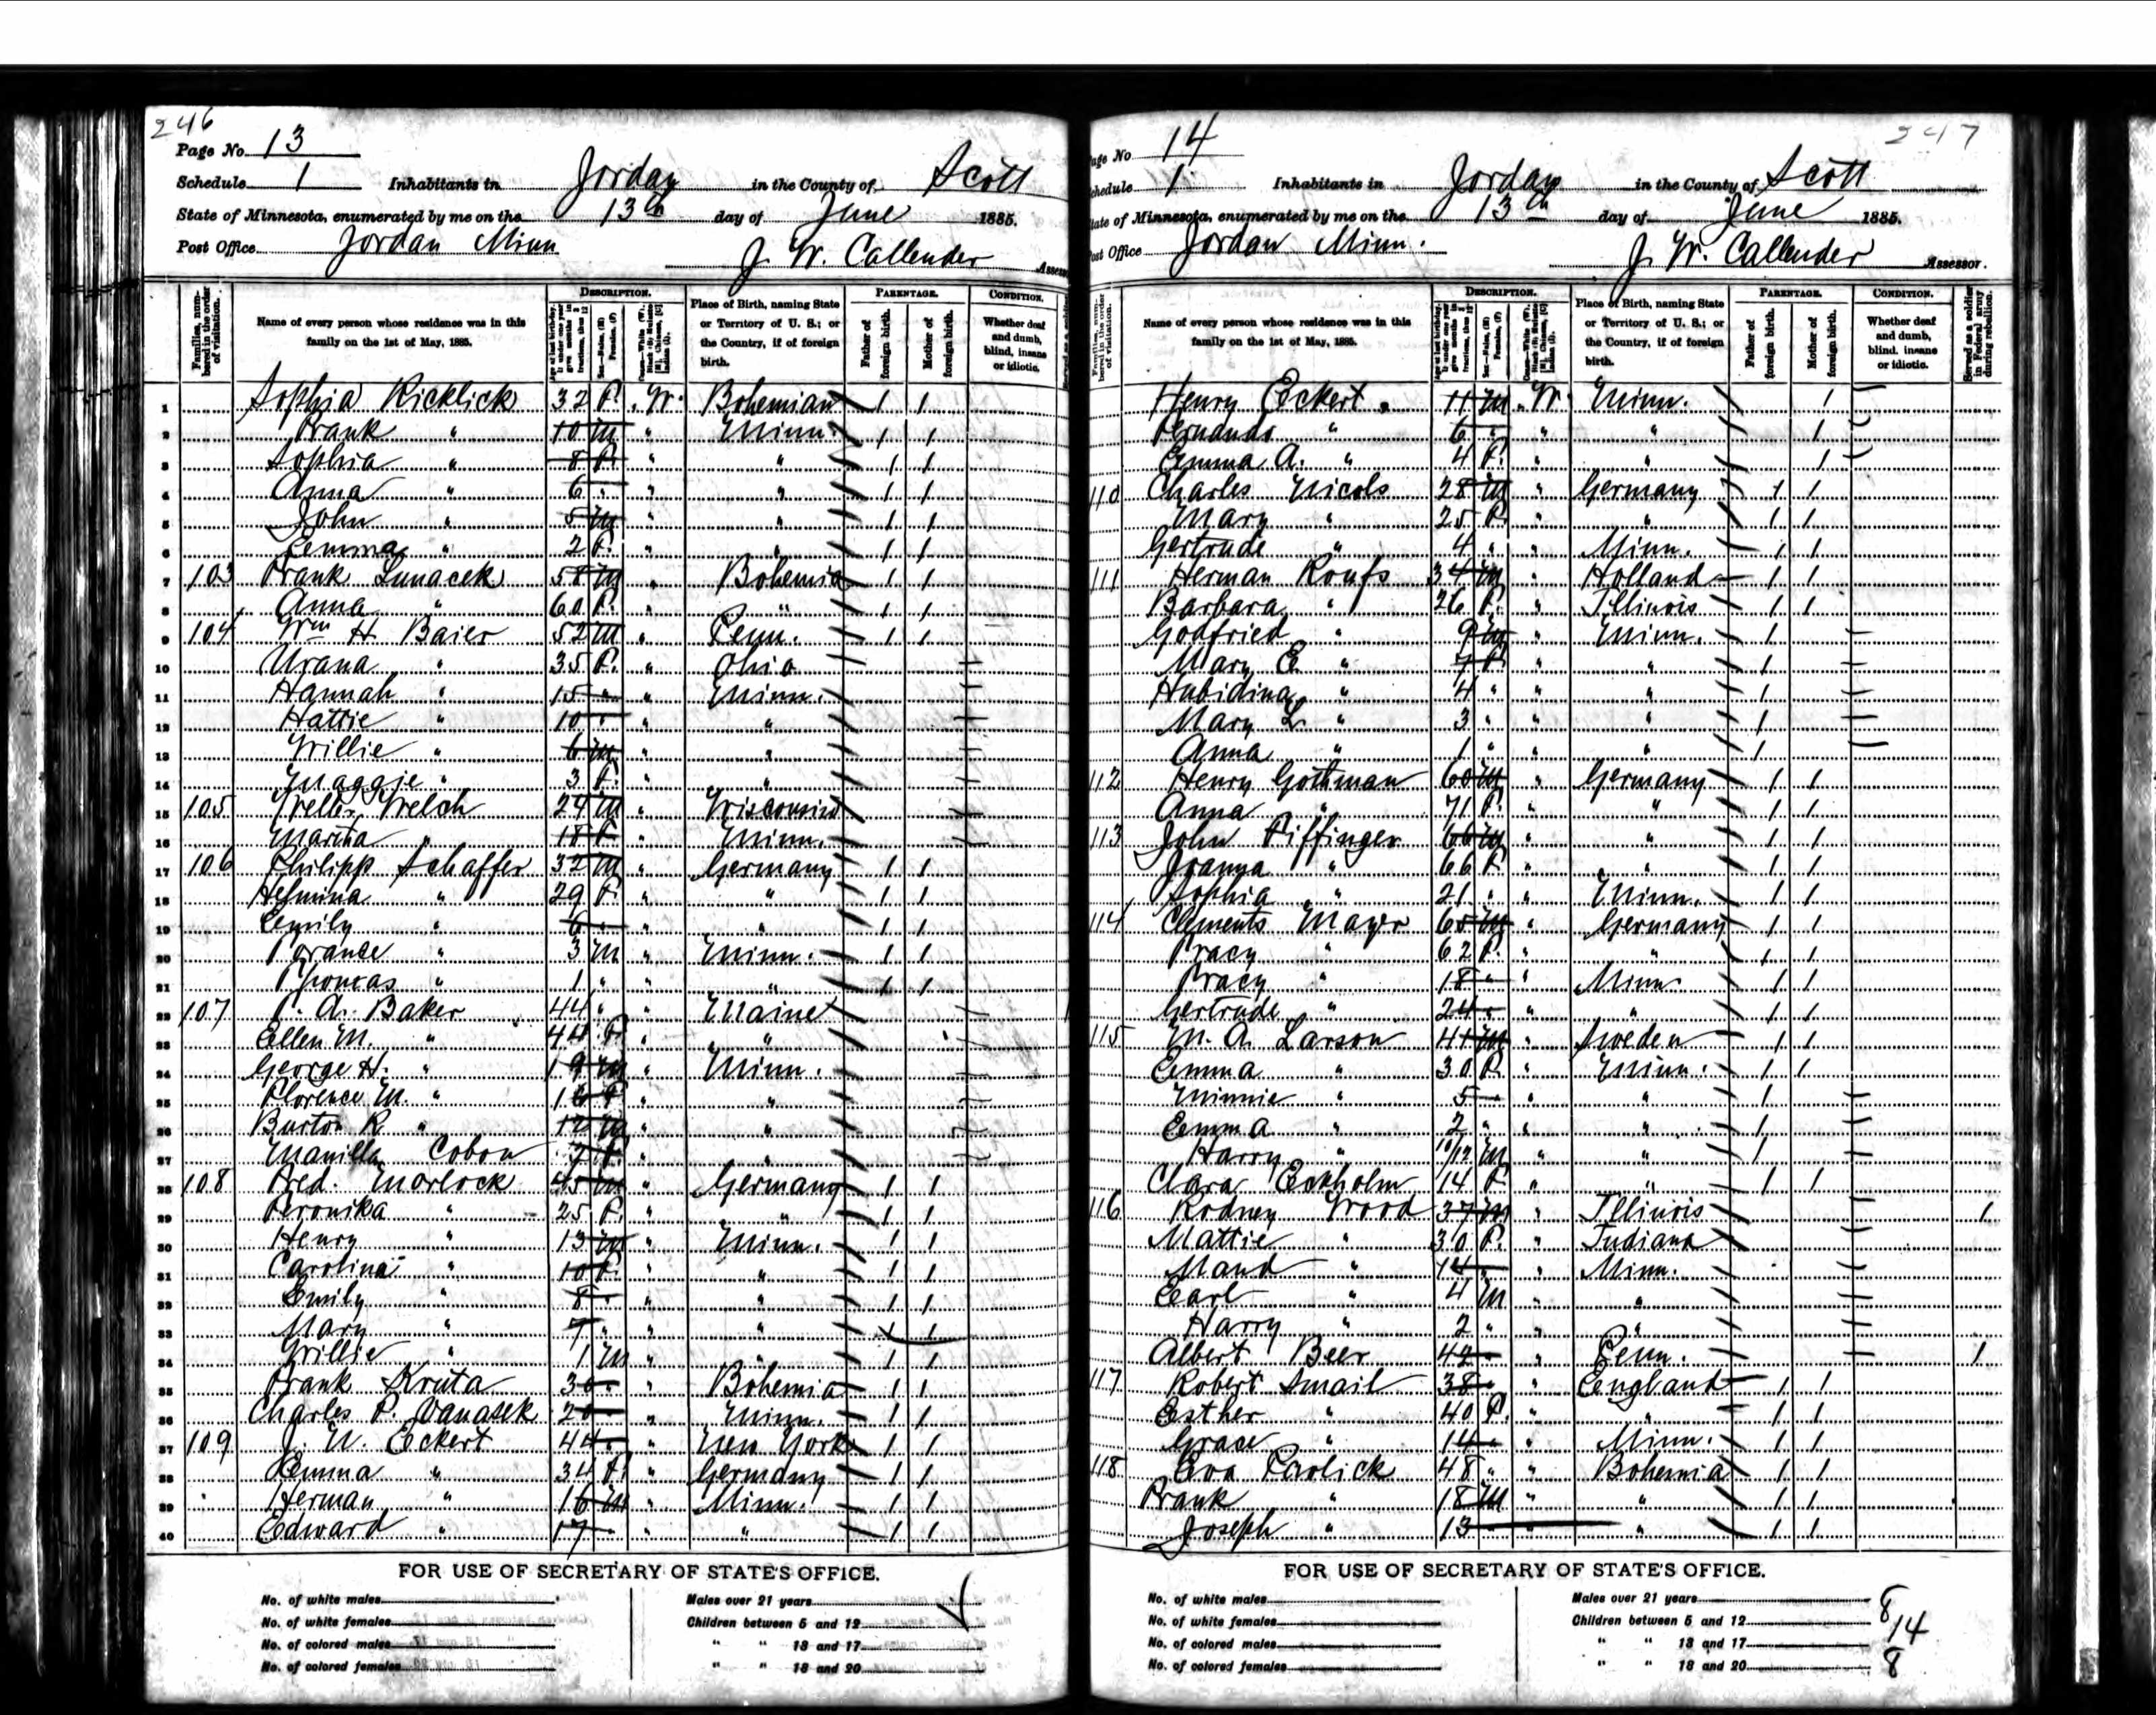 246
Page No. 13
Schedule 1 Inhabitants in Jordan in the County of Scott
State of Minnesota, enumerated by me on the 13th day of June 1885.
Post Office Jordan Minn J. W. Callender Assessor
Families, numbered in the order of visitation.
Name of every person whose residence was in this family on the 1st of May, 1885.
DESCRIPTION.
Place of Birth, naming State or Territory of U. S.; or the Country, if of foreign birth.
PARENTAGE.
Father of foreign birth.
Mother of foreign birth.
CONDITION.
Whether deaf and dumb, blind, insane or idiotic.
1 Sophia Ricklick 32 F. W. Bohemian 1 1
2 Frank " 10 M " Minn. 1 1
3 Sophia " 8 F. " " 1 1
4 Anna " 6 " " " 1 1
5 John " 5 M " " 1 1
6 Emma " 2 F. " " 1 1
7 103 Frank Lunacek 58 M " Bohemia 1 1
8 Anna " 60 F. " " 1 1
9 104 Wm H. Baier 52 M " Penn. 1 1
10 Urana " 35 F. " Ohio
11 Hannah " 15 " " Minn.
12 Hattie " 10 " " "
13 Willie " 6 M " "
14 Maggie " 3 F. " "
15 105 Welch 24 M " Wisconsin
16 Martha " 18 F " Minn.
17 106 Philipp Schaffer 32 M " Germany 1 1
18 Helmina " 29 F " " 1 1
19 Emily " 6 " " 1 1
20 " 3 M " Minn. 1 1
21 Thomas " 1 " " " 1 1
22 107 A. Baker 44 " " Maine
23 Ellen M. " 44 F. " "
24 George H. " 19 M " Minn.
25 Florence M. " 16 F " "
26 Burton R " 12 M " "
27 Manilla Cobon 7 F. " "
28 108 Fred. Morlock 45 M " Germany 1 1
29 Feronika " 25 F. " " 1 1
30 Henry " 13 M " Minn. 1 1
31 Carolina " 10 F. " " 1 1
32 Emily " 8 " " " 1 1
33 Mary " 7 " " " 1 1
34 Willie " 1 M " " 1 1
35 Frank Kruta 30 " " Bohemia 1 1
36 Charles P. Vanasek 20 " " Minn. 1 1
37 109 J. W. Eckert 44 " " New York 1 1
38 Emma " 34 F. " Germany 1 1
39 Herman " 16 M " Minn. 1 1
40 Edward " 17 " " " 1 1
FOR USE OF SECRETARY OF STATE'S OFFICE.
No. of white males Males over 21 years
No. of white females Children between 5 and 12
No. of colored males " " 13 and 17
No. of colored females " " 18 and 20
247
Page No 14
Schedule 1 Inhabitants in Jordan in the County of Scott
State of Minnesota, enumerated by me on the 13th day of June 1885.
Post Office Jordan Minn. J. W. Callender Assessor.
Name of every person whose residence was in this family on the 1st of May, 1885.
DESCRIPTION.
Place of Birth, naming State or Territory of U. S.; or the Country, if of foreign birth.
PARENTAGE.
Father of foreign birth.
Mother of foreign birth.
CONDITION.
Whether deaf and dumb, blind, insane or idiotic.
Served as a soldier in Federal army during rebellion.
Henry Eckert 11 M W. Minn. 1
" 6 " " " 1
Emma A. " 4 F. " 1
110 Charles Nicols 28 M " Germany 1 1
Mary " 25 F. " 1 1
Gertrude " 4 " " Minn. 1 1
111 Herman Roufs 34 M " Holland 1 1
Barbara " 26 F. " Illinois 1 1
Godfried " 9 M " Minn. 1
Mary E " 7 F. " 1
Hubidina " 4 " " " 1
Mary L " 3 " " " 1
Anna " 1 " " " 1
112 Henry Gothman 60 M " Germany 1 1
Anna " 71 F. " " 1 1
113 John Piffinger 66 M " " 1 1
Joanna " 66 F " " 1 1
Sophia " 21 " " Minn. 1 1
114 Clements Mayer 65 M " Germany 1 1
Tracy " 62 F. " " 1 1
Tracy " 18 " " Minn. 1 1
Gertrude " 24 " " " 1 1
115 M. A. Larson 41 M " Sweden 1 1
Emma " 30 F. " Minn. 1 1
Minnie " 5 " " 1
Emma " 2 " " " 1
Harry " 10/12 M " " 1
Clara Eckholm 14 F " " 1 1
116 Rodney Wood 37 M " Illinois 1
Mattie " 30 F. " Indiana
Maud " 14 " " Minn.
Earl " 4 M " "
Harry " 2 " " "
Albert Beer 42 " " Penn. 1
117 Robert Smail 38 " " England 1 1
Esther " 40 F. " " 1 1
Grace " 14 " " Minn. 1 1
118 Eva 48 " " Bohemia 1 1
Frank " 18 M " " 1 1
Joseph " 13 " 1 1
FOR USE OF SECRETARY OF STATE'S OFFICE.
No. of white males Males over 21 years 8
No. of white females Children between 5 and 12 14
No. of colored males " " 13 and 17
No. of colored females " " 18 and 20 8